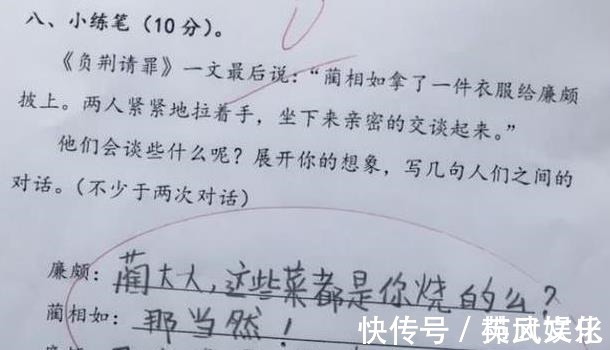 八、小练笔（10分）。
《负荆请罪》一文最后说：“蔺相如拿了一件衣服给廉颇
披上。两人紧紧地拉着手，坐下来亲密的交谈起来。”
他们会谈些什么呢？展开你的想象，写几句人们之间的
对话。（不少于两次对话）
廉颇：蔺大人，这些菜都是你烧的么？
蔺相如：那当然！
快传号／